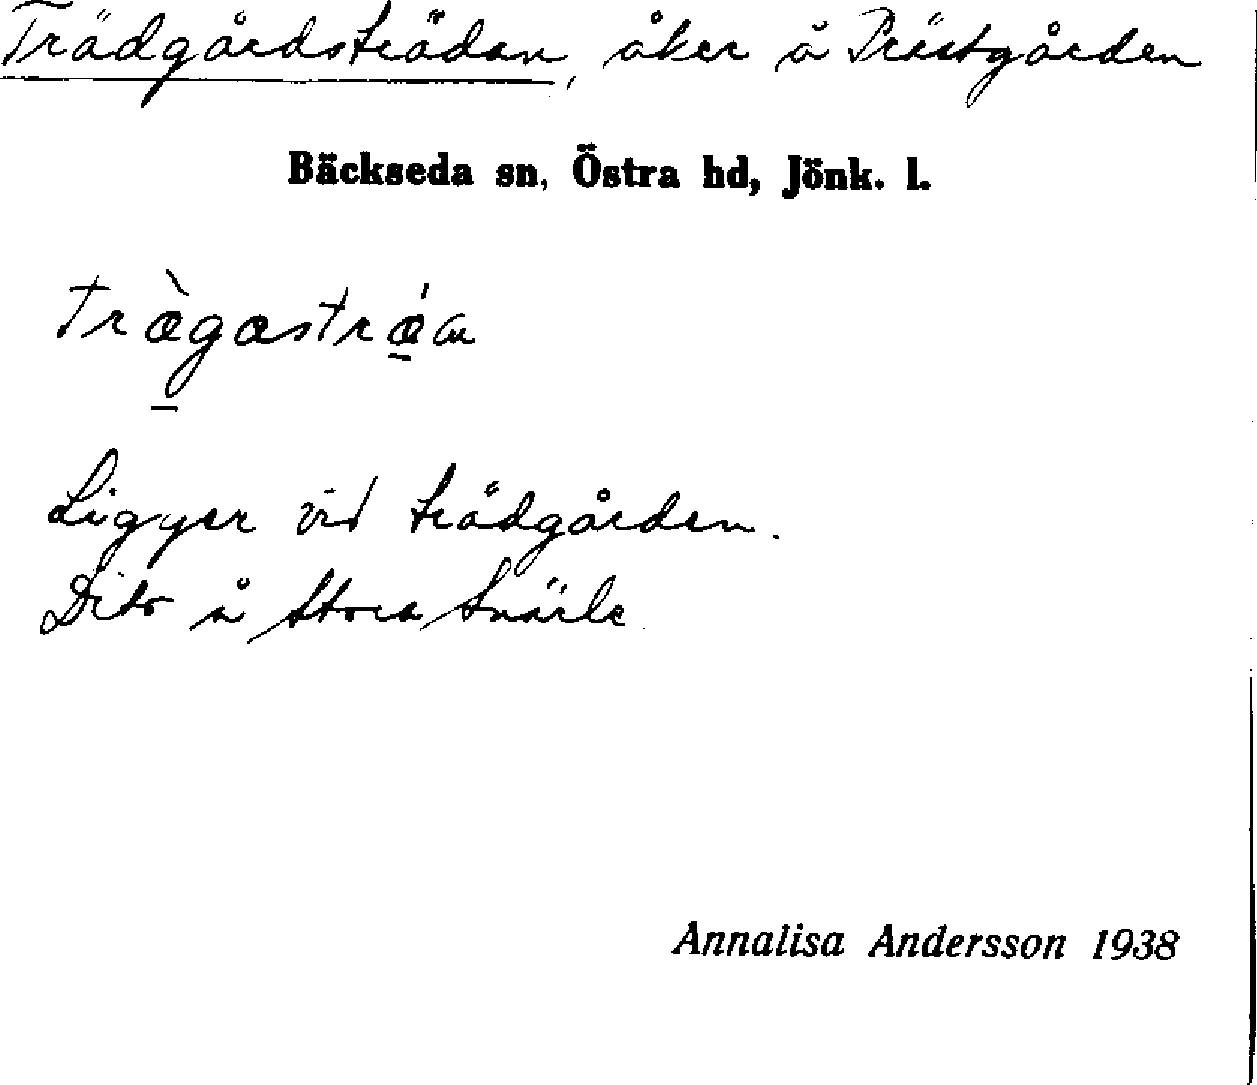 Trädgårdsträdan, åker å Prästgården
Bäckseda sn, Östra hd, Jönk. l.
Ligger vid trädgården.
Dito å Stora Snärle
Annalisa Andersson 1938